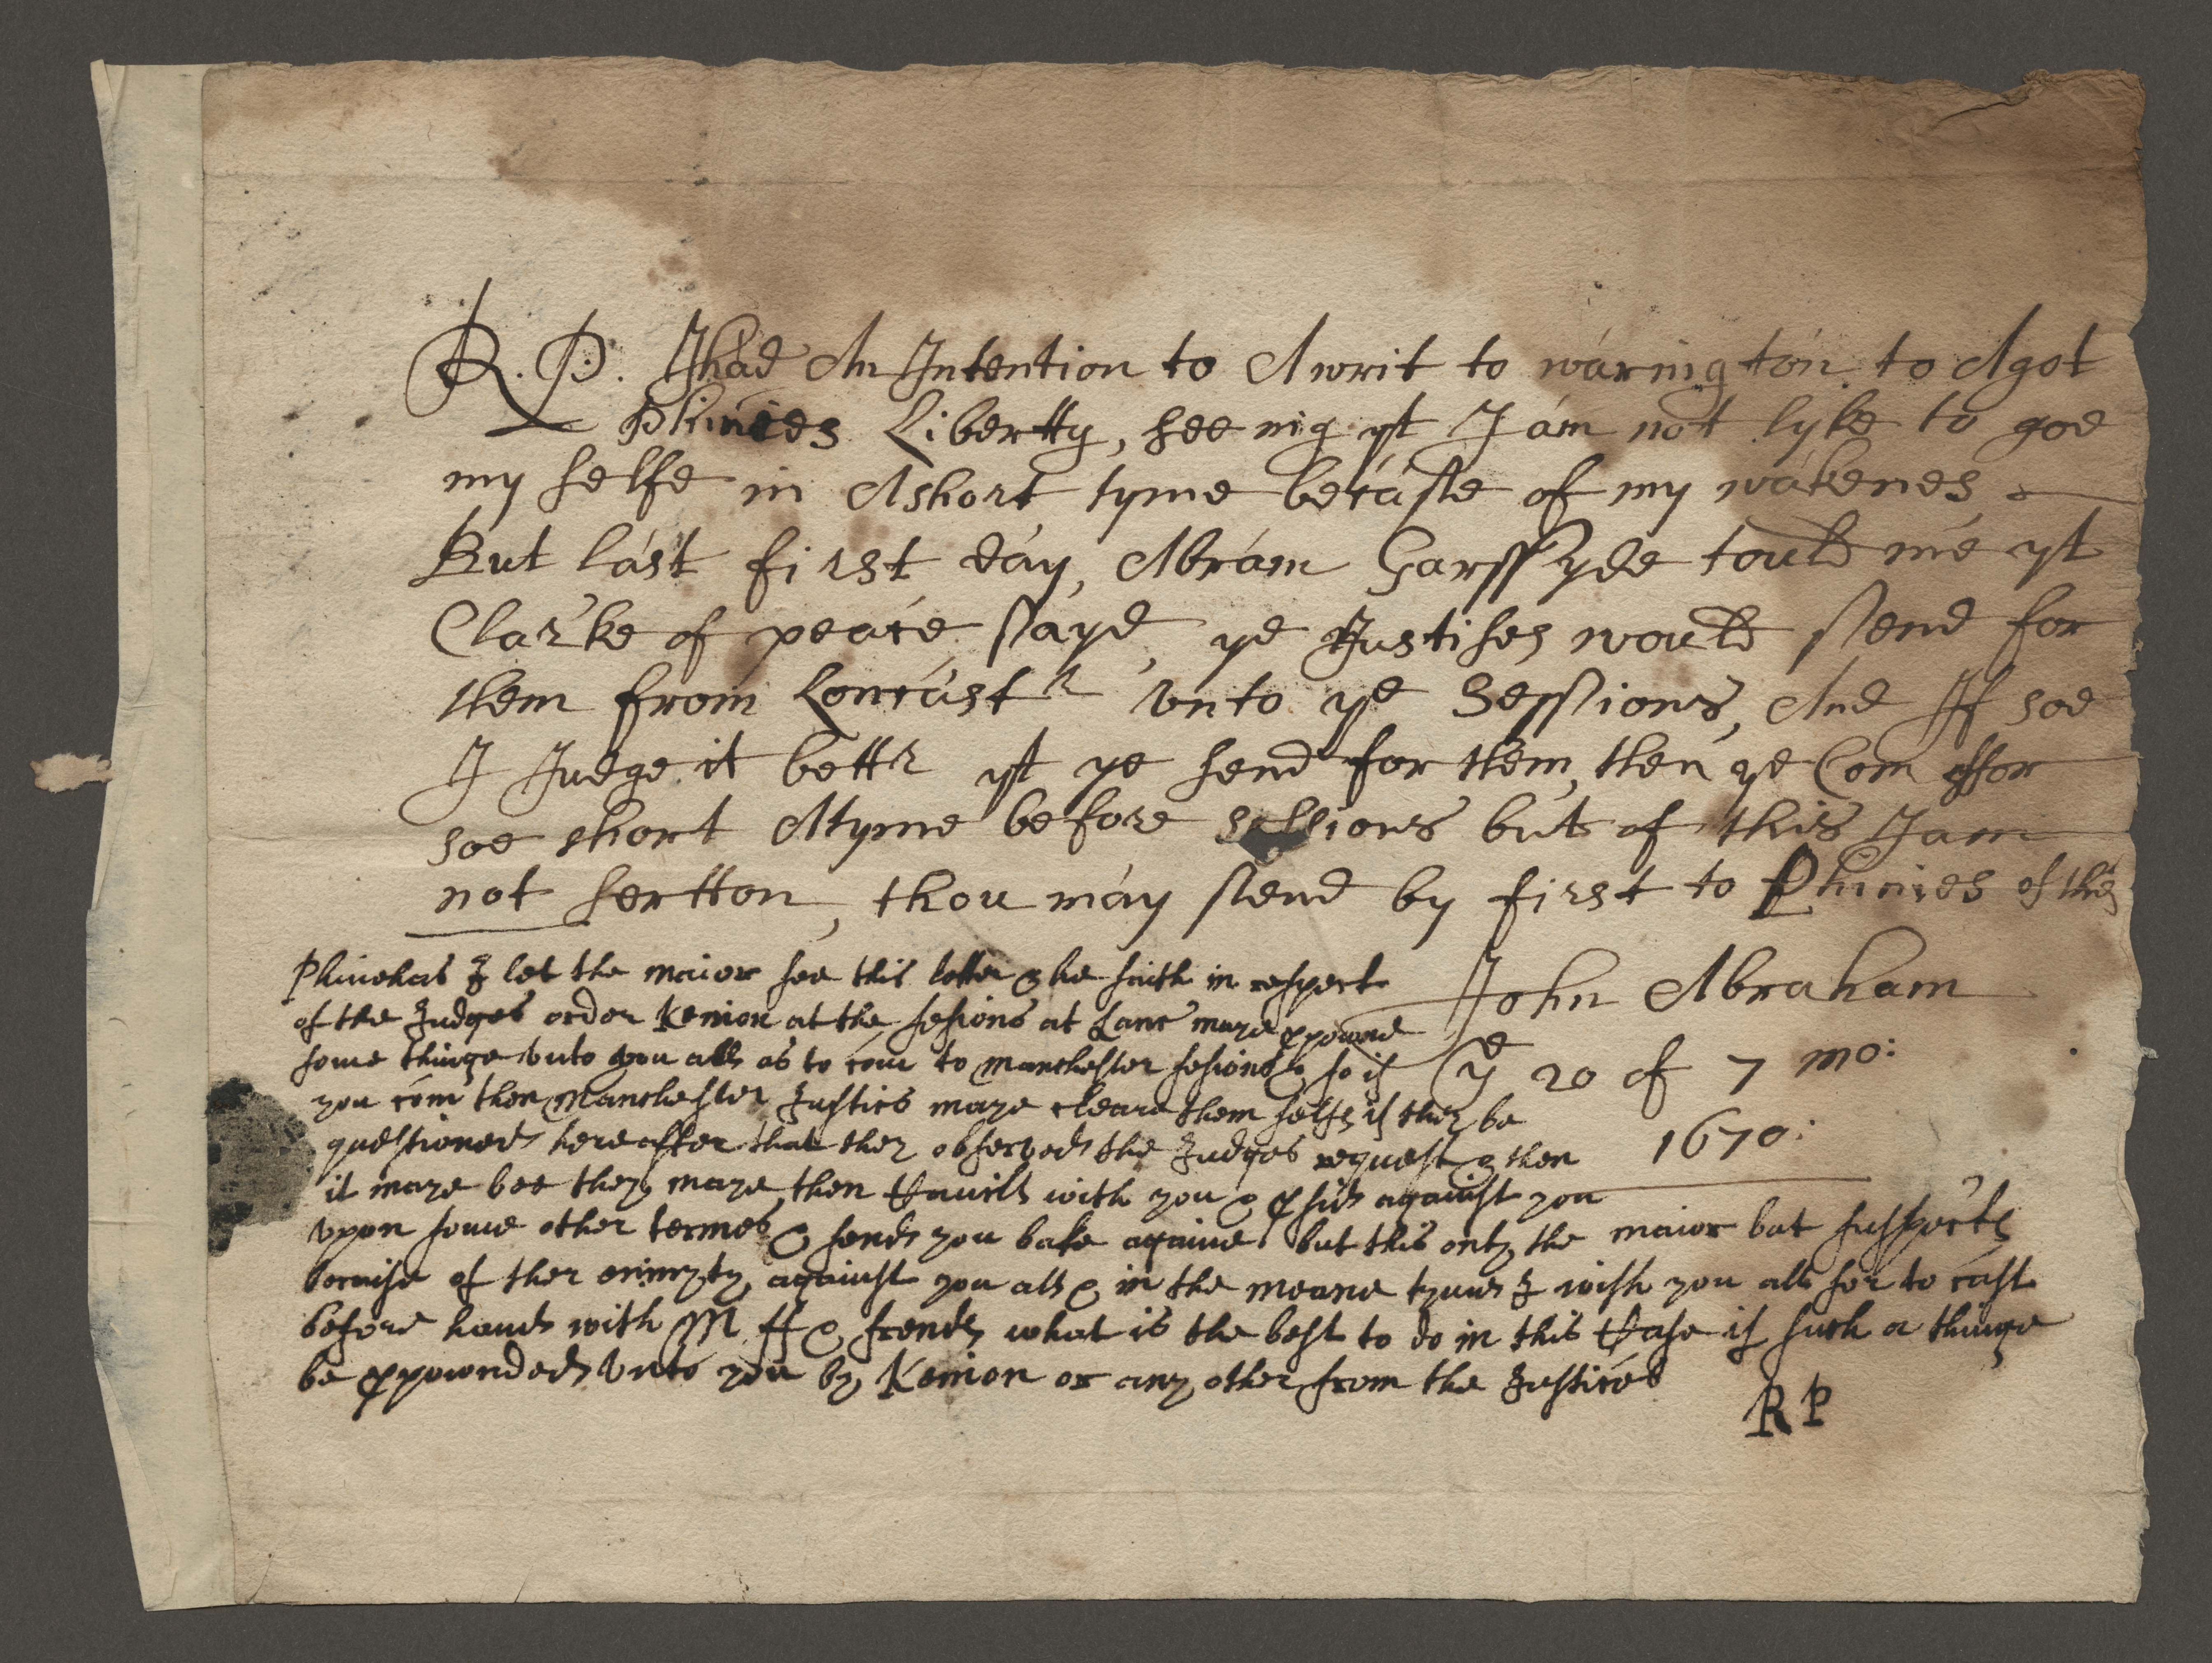 R. P. I had An Intention to Awrit to warington to Agot
Phinies Libertty, seeing yt I am not lyke to goe
my selfe in Ashort tyme becasse of my wakenes
But last first day, Abram Garssyde tould me yt
Clarke of peace sayd, ye Justises would send for
them from Loncastr unto ye Sessions, And If soe
I Judge it bettr yt ye send for them, then ye Com ffor
soe short Atyme before sessions but of this I am
not sertton, thou may send by first to Phinies of this
John Abraham
ye 20 of 7 mo:
1670:
Phinehas I let the maior see this letter & he saith in respect
of the Judges order Kenion at the sesions at Lanc maye ppownd
some thinge unto you all as to com to Manchester sesions & so if
you com then Manchester Justics maye cleare them selfs if they be
questioned hereaffter that they observed the Judges request & then
it maye bee they maye then Cavill with you & psid against you
vpon some other termes & send you bake againe but this only the maior but suspects
becaise of ther enimyty against you all & in the meane tyme I wish you all for to cast
before hand with M ff & frends what is the best to do in this Case if such a thinge
be ppownded unto you by Kenion or any other from the Justices
R P